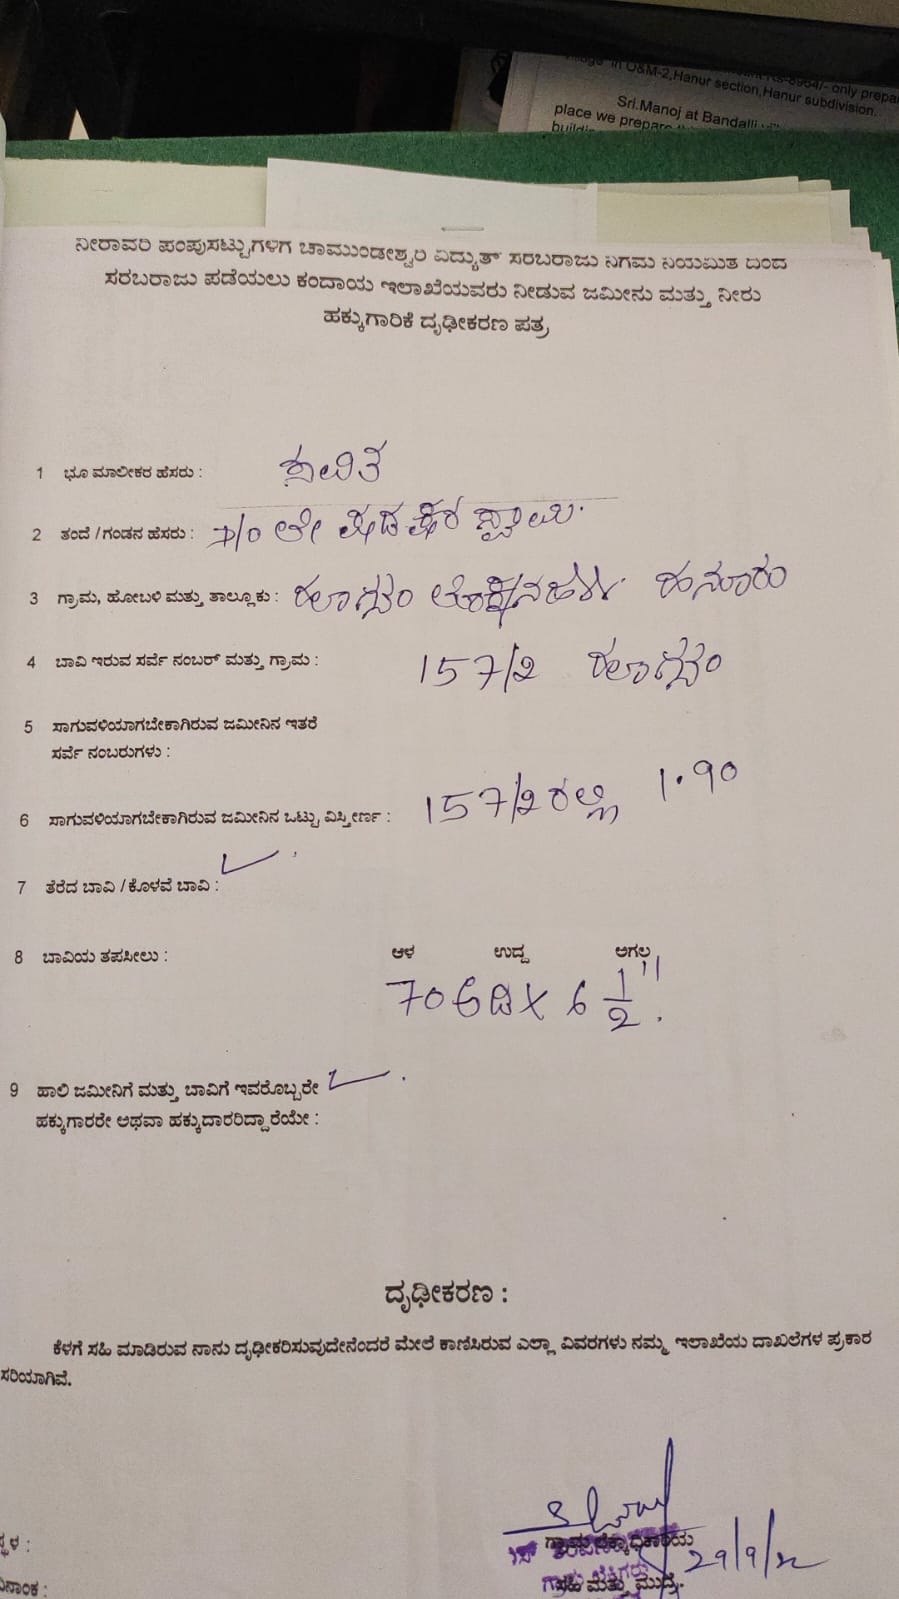 O&M-2,Hanur section,Hanur subdivision.
Sri.Manoj at Bandalli
place we prepare
ನೀರಾವರಿ ಪಂಪುಸೆಟ್ಟುಗಳಿಗೆ ಚಾಮುಂಡೇಶ್ವರಿ ವಿದ್ಯುತ್ ಸರಬರಾಜು ನಿಗಮ ನಿಯಮಿತ ದಿಂದ
ಸರಬರಾಜು ಪಡೆಯಲು ಕಂದಾಯ ಇಲಾಖೆಯವರು ನೀಡುವ ಜಮೀನು ಮತ್ತು ನೀರು
ಹಕ್ಕುಗಾರಿಕೆ ದೃಢೀಕರಣ ಪತ್ರ
1 ಭೂ ಮಾಲೀಕರ ಹೆಸರು :
2 ತಂದೆ / ಗಂಡನ ಹೆಸರು : ಲೇ ಷಡಕ್ಷರ ಸ್ವಾಮಿ.
3 ಗ್ರಾಮ, ಹೋಬಳಿ ಮತ್ತು ತಾಲ್ಲೂಕು : ಹನೂರು
4 ಬಾವಿ ಇರುವ ಸರ್ವೆ ನಂಬರ್ ಮತ್ತು ಗ್ರಾಮ : 157/2
5 ಸಾಗುವಳಿಯಾಗಬೇಕಾಗಿರುವ ಜಮೀನಿನ ಇತರೆ
ಸರ್ವೆ ನಂಬರುಗಳು :
6 ಸಾಗುವಳಿಯಾಗಬೇಕಾಗಿರುವ ಜಮೀನಿನ ಒಟ್ಟು ವಿಸ್ತೀರ್ಣ : 157/2ರಲ್ಲಿ 1.90
7 ತೆರೆದ ಬಾವಿ / ಕೊಳವೆ ಬಾವಿ :
8 ಬಾವಿಯ ತಪಸೀಲು : ಆಳ ಉದ್ದ ಅಗಲ
70 ಅಡಿ X 6 1/2".
9 ಹಾಲಿ ಜಮೀನಿಗೆ ಮತ್ತು ಬಾವಿಗೆ ಇವರೊಬ್ಬರೇ
ಹಕ್ಕುಗಾರರೇ ಅಥವಾ ಹಕ್ಕುದಾರರಿದ್ದಾರೆಯೇ :
ದೃಢೀಕರಣ :
ಕೆಳಗೆ ಸಹಿ ಮಾಡಿರುವ ನಾನು ದೃಢೀಕರಿಸುವುದೇನೆಂದರೆ ಮೇಲೆ ಕಾಣಿಸಿರುವ ಎಲ್ಲಾ ವಿವರಗಳು ನಮ್ಮ ಇಲಾಖೆಯ ದಾಖಲೆಗಳ ಪ್ರಕಾರ
ಸರಿಯಾಗಿವೆ.
ಗ್ರಾಮ ಲೆಕ್ಕಾಧಿಕಾರಿಯ 29/9/22
ಸಹಿ ಮತ್ತು ಮುದ್ರೆ.